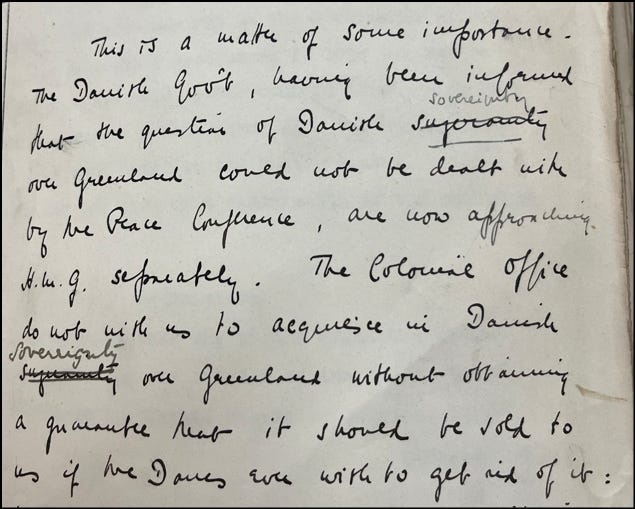 This is a matter of some importance.
The Danish Gov't, having been informed
sovereignty
that the question of Danish suzerainty
over Greenland could not be dealt with
by the Peace Conference, are now approaching
H.M.G. separately. The Colonial Office
do not wish us to acquiesce in Danish
sovereignty
suzerainty over Greenland without obtaining
a guarantee that it should be sold to
us if the Danes ever wish to get rid of it: